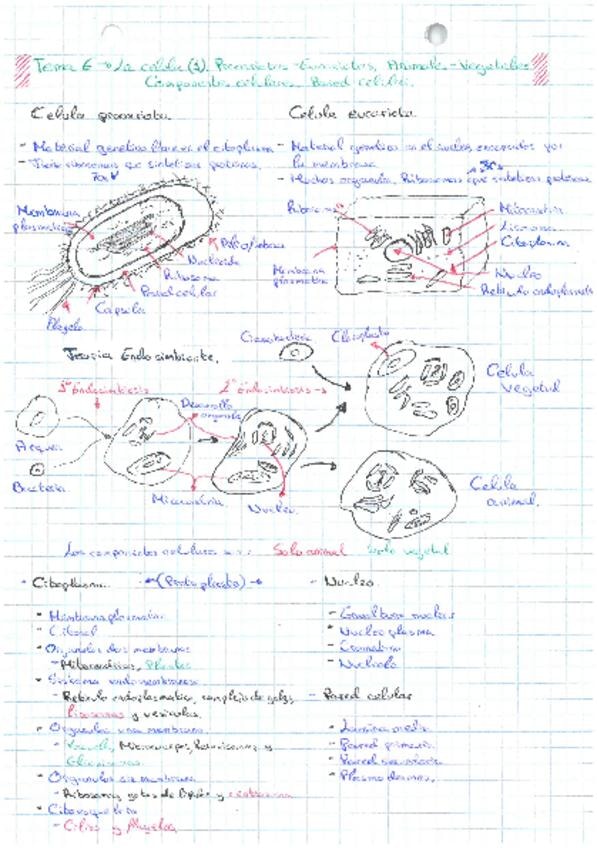 Tema 6 → La celula (1). Procariotas - Eucariotas, Animales - Vegetales
Componentes celulares. Pared celular.
Celula procariota
Celula eucariota
- Material genetico libre en el citoplasma
- Tiene ribosomas que sintetizan proteinas.
70s
- Material genetico en el nucleo encerrados por
la membrana
- Muchos organulos. Ribosomas que sintetizan proteinas
Membrana
plasmatica
Nucleoide
Ribosoma
Pared celular
Capsula
Flagelo
Ribosoma
Membrana
plasmatica
Citoplasma
Nucleo
Reticulo endoplasmatico
Teoria Endosimbionte.
Cianobacteria
Cloroplasto
Celula
Vegetal
1ª Endosimbiosis
2ª Endosimbiosis
Desarrollo
organulos
Arquea
Bacteria
Mitocondria
Nucleo
Celula
animal.
Los componentes celulares son:
Solo animal
Solo vegetal
- Citoplasma
(Protoplasto)
- Membrana plasmatica
- Citosol
- Organulos dos membranas
- Mitocondrias, Plastos
- Sistema endomembranoso
- Reticulo endoplasmatico, complejo de golgi,
lisosomas y vesiculas.
- Organulos una membrana
- Vacuola, Microcuerpos, Peroxisomas y
Glioxisomas.
- Organulos sin membrana
- Ribosomas, gotas de lipidos y centrosoma
- Citoesqueleto
- Cilios y flagelos
- Nucleo
- Envoltura nuclear
- Nucleoplasma
- Cromatina
- Nucleolo
- Pared celular
- Lamina media
- Pared primaria
- Pared secundaria
- Plasmodesmos.